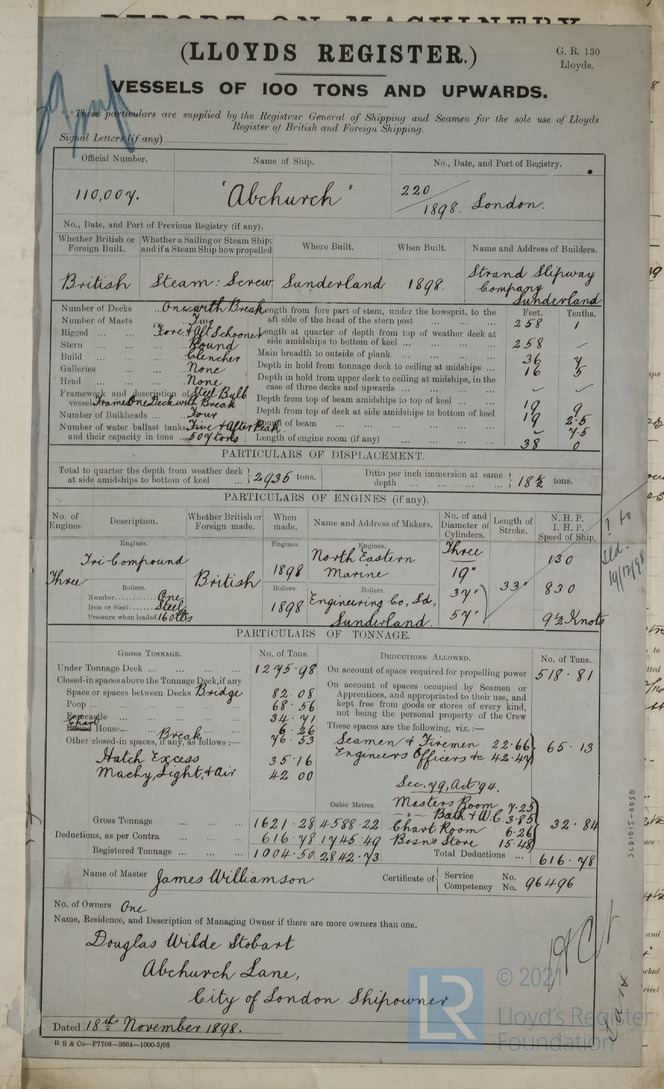 REPORT ON MACHINERY
(LLOYDS REGISTER.)
G. R. 130
Lloyds.
VESSELS OF 100 TONS AND UPWARDS.
These particulars are supplied by the Registrar General of Shipping and Seamen for the sole use of Lloyds
Register of British and Foreign Shipping.
Signal Letters (if any)
Official Number. Name of Ship. No., Date, and Port of Registry.
110,007. "Abchurch" 220/1898. London.
No., Date, and Port of Previous Registry (if any).
Whether British or Foreign Built. Whether a Sailing or Steam Ship; and if a Steam Ship how propelled Where Built. When Built. Name and Address of Builders.
British Steam: Screw Sunderland 1898. Strand Slipway Company Sunderland
Feet. Tenths.
Number of Decks ... One with Break
Number of Masts ... Two
Rigged ... Fore & Aft Schooner
Stern ... Round
Build ... Clencher
Galleries ... None
Head ... None
Framework and description of vessel Steel Bulb Frames One Deck with Break
Number of Bulkheads ... Four
Number of water ballast tanks and their capacity in tons ... Five & After Peak 507 tons
Length from fore part of stem, under the bowsprit, to the aft side of the head of the stern post ... 258 1
Length at quarter of depth from top of weather deck at side amidships to bottom of keel ... 258 –
Main breadth to outside of plank ... 36 7
Depth in hold from tonnage deck to ceiling at midships ... 16 5
Depth in hold from upper deck to ceiling at midships, in the case of three decks and upwards ... – –
Depth from top of beam amidships to top of keel ... 19 9
Depth from top of deck at side amidships to bottom of keel 19 2.5
Round of beam ... – 7.5
Length of engine room (if any) ... 38 0
PARTICULARS OF DISPLACEMENT.
Total to quarter the depth from weather deck at side amidships to bottom of keel ... 2935 tons. Ditto per inch immersion at same depth ... 18½ tons.
PARTICULARS OF ENGINES (if any).
No. of Engines. Description. Whether British or Foreign made. When made. Name and Address of Makers. No. of and Diameter of Cylinders. Length of Stroke. N. H. P. I. H. P. Speed of Ship.
Engines. Engines. Engines.
Three Tri Compound British 1898 North Eastern Marine Three 19" 33" 130
Boilers. Boilers Boilers.
Number......... One
Iron or Steel...... Steel
Pressure when loaded 160 lbs
1898 Engineering Co, Ld, Sunderland. 37" 57" 830 9½ Knots
? to
Sld.
19/12/98
PARTICULARS OF TONNAGE.
GROSS TONNAGE. No. of Tons. DEDUCTIONS ALLOWED. No. of Tons.
Under Tonnage Deck ... 1275.98
Closed-in spaces above the Tonnage Deck, if any
Space or spaces between Decks Bridge 82.08
Poop ... 68.56
Forecastle ... 34.71
Round House Chart ... 6.26
Other closed-in spaces, if any, as follows:— Break 76.53
Hatch Excess 35.16
Machy, Light, & Air 42.00
Cubic Metres.
Gross Tonnage 1621.28 4588.22
Deductions, as per Contra ... 616.78 1745.49
Registered Tonnage ... 1004.50 2842.73
On account of space required for propelling power 518.81
On account of spaces occupied by Seamen or
Apprentices, and appropriated to their use, and
kept free from goods or stores of every kind,
not being the personal property of the Crew
These spaces are the following, viz.:—
Seamen & Firemen 22.66
Engineers Officers &c 42.47 65.13
Sec. 79, Act 94.
Masters Room 7.25
" Bath & W.C. 3.85
Chart Room 6.26
Bosns Store 15.48 32.84
Total Deductions ... 616.78
Name of Master James Williamson Certificate of Service No. Competency No. 96496
No. of Owners One
Name, Residence, and Description of Managing Owner if there are more owners than one.
Douglas Wilde Stobart
Abchurch Lane,
City of London Shipowner
Dated 18th November 1898.
R S & Co—P7708—3664—1000-5/98
SLD1015-0050
LR
© 2021
Lloyd's Register
Foundation